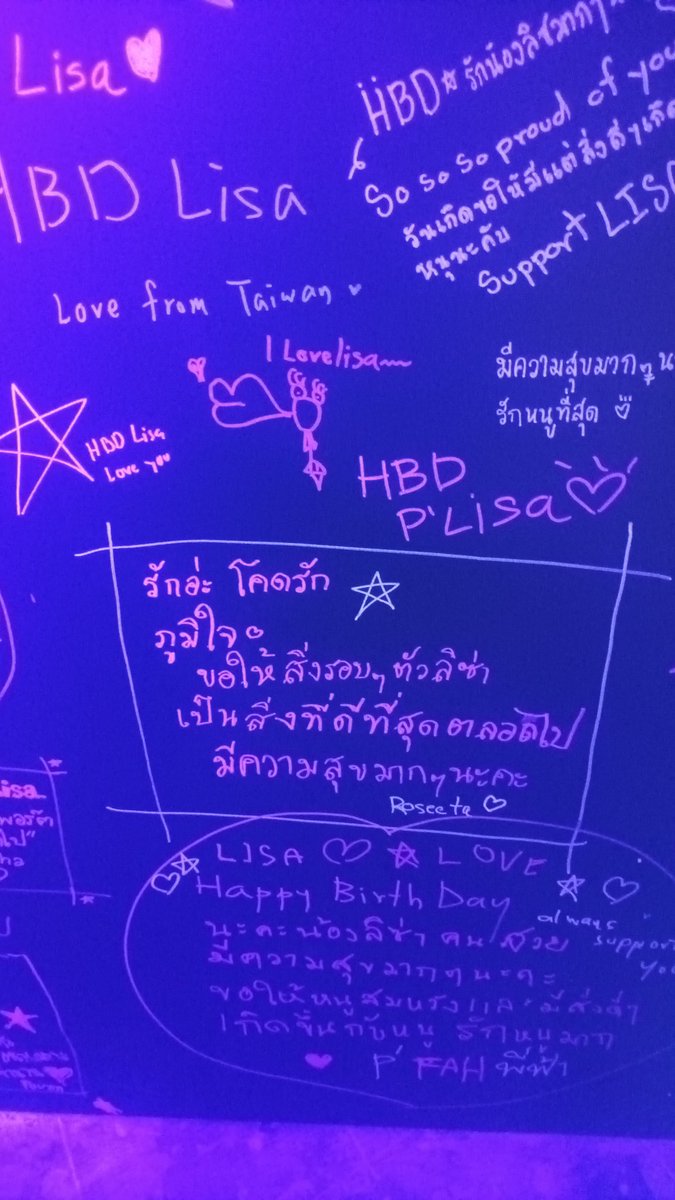 Lisa
HBD Lisa
HBD รักน้องลิซมากๆ
So so so proud of you
วันเกิดขอให้มีแต่สิ่งดีๆเกิด
หนูนะคับ
Support LISA
Love from Taiwan
I Love lisa
มีความสุขมากๆน
รักหนูที่สุด
HBD Lisa
Love you
HBD
P'Lisa
รักอ่ะ โคดรัก
ภูมิใจ
ขอให้สิ่งรอบๆตัวลิซ่า
เป็นสิ่งที่ดีที่สุดตลอดไป
มีความสุขมากๆนะคะ
Roseeta
LISA LOVE
Happy Birth Day
always
support
you
นะคะน้องลิซ่าคนสวย
มีความสุขมากๆนะคะ
ขอให้หนูสมหวังและมีสิ่งดีๆ
เกิดขึ้นกับหนู รักหนูมาก
P' FAH พี่ฟ้า
Lisa